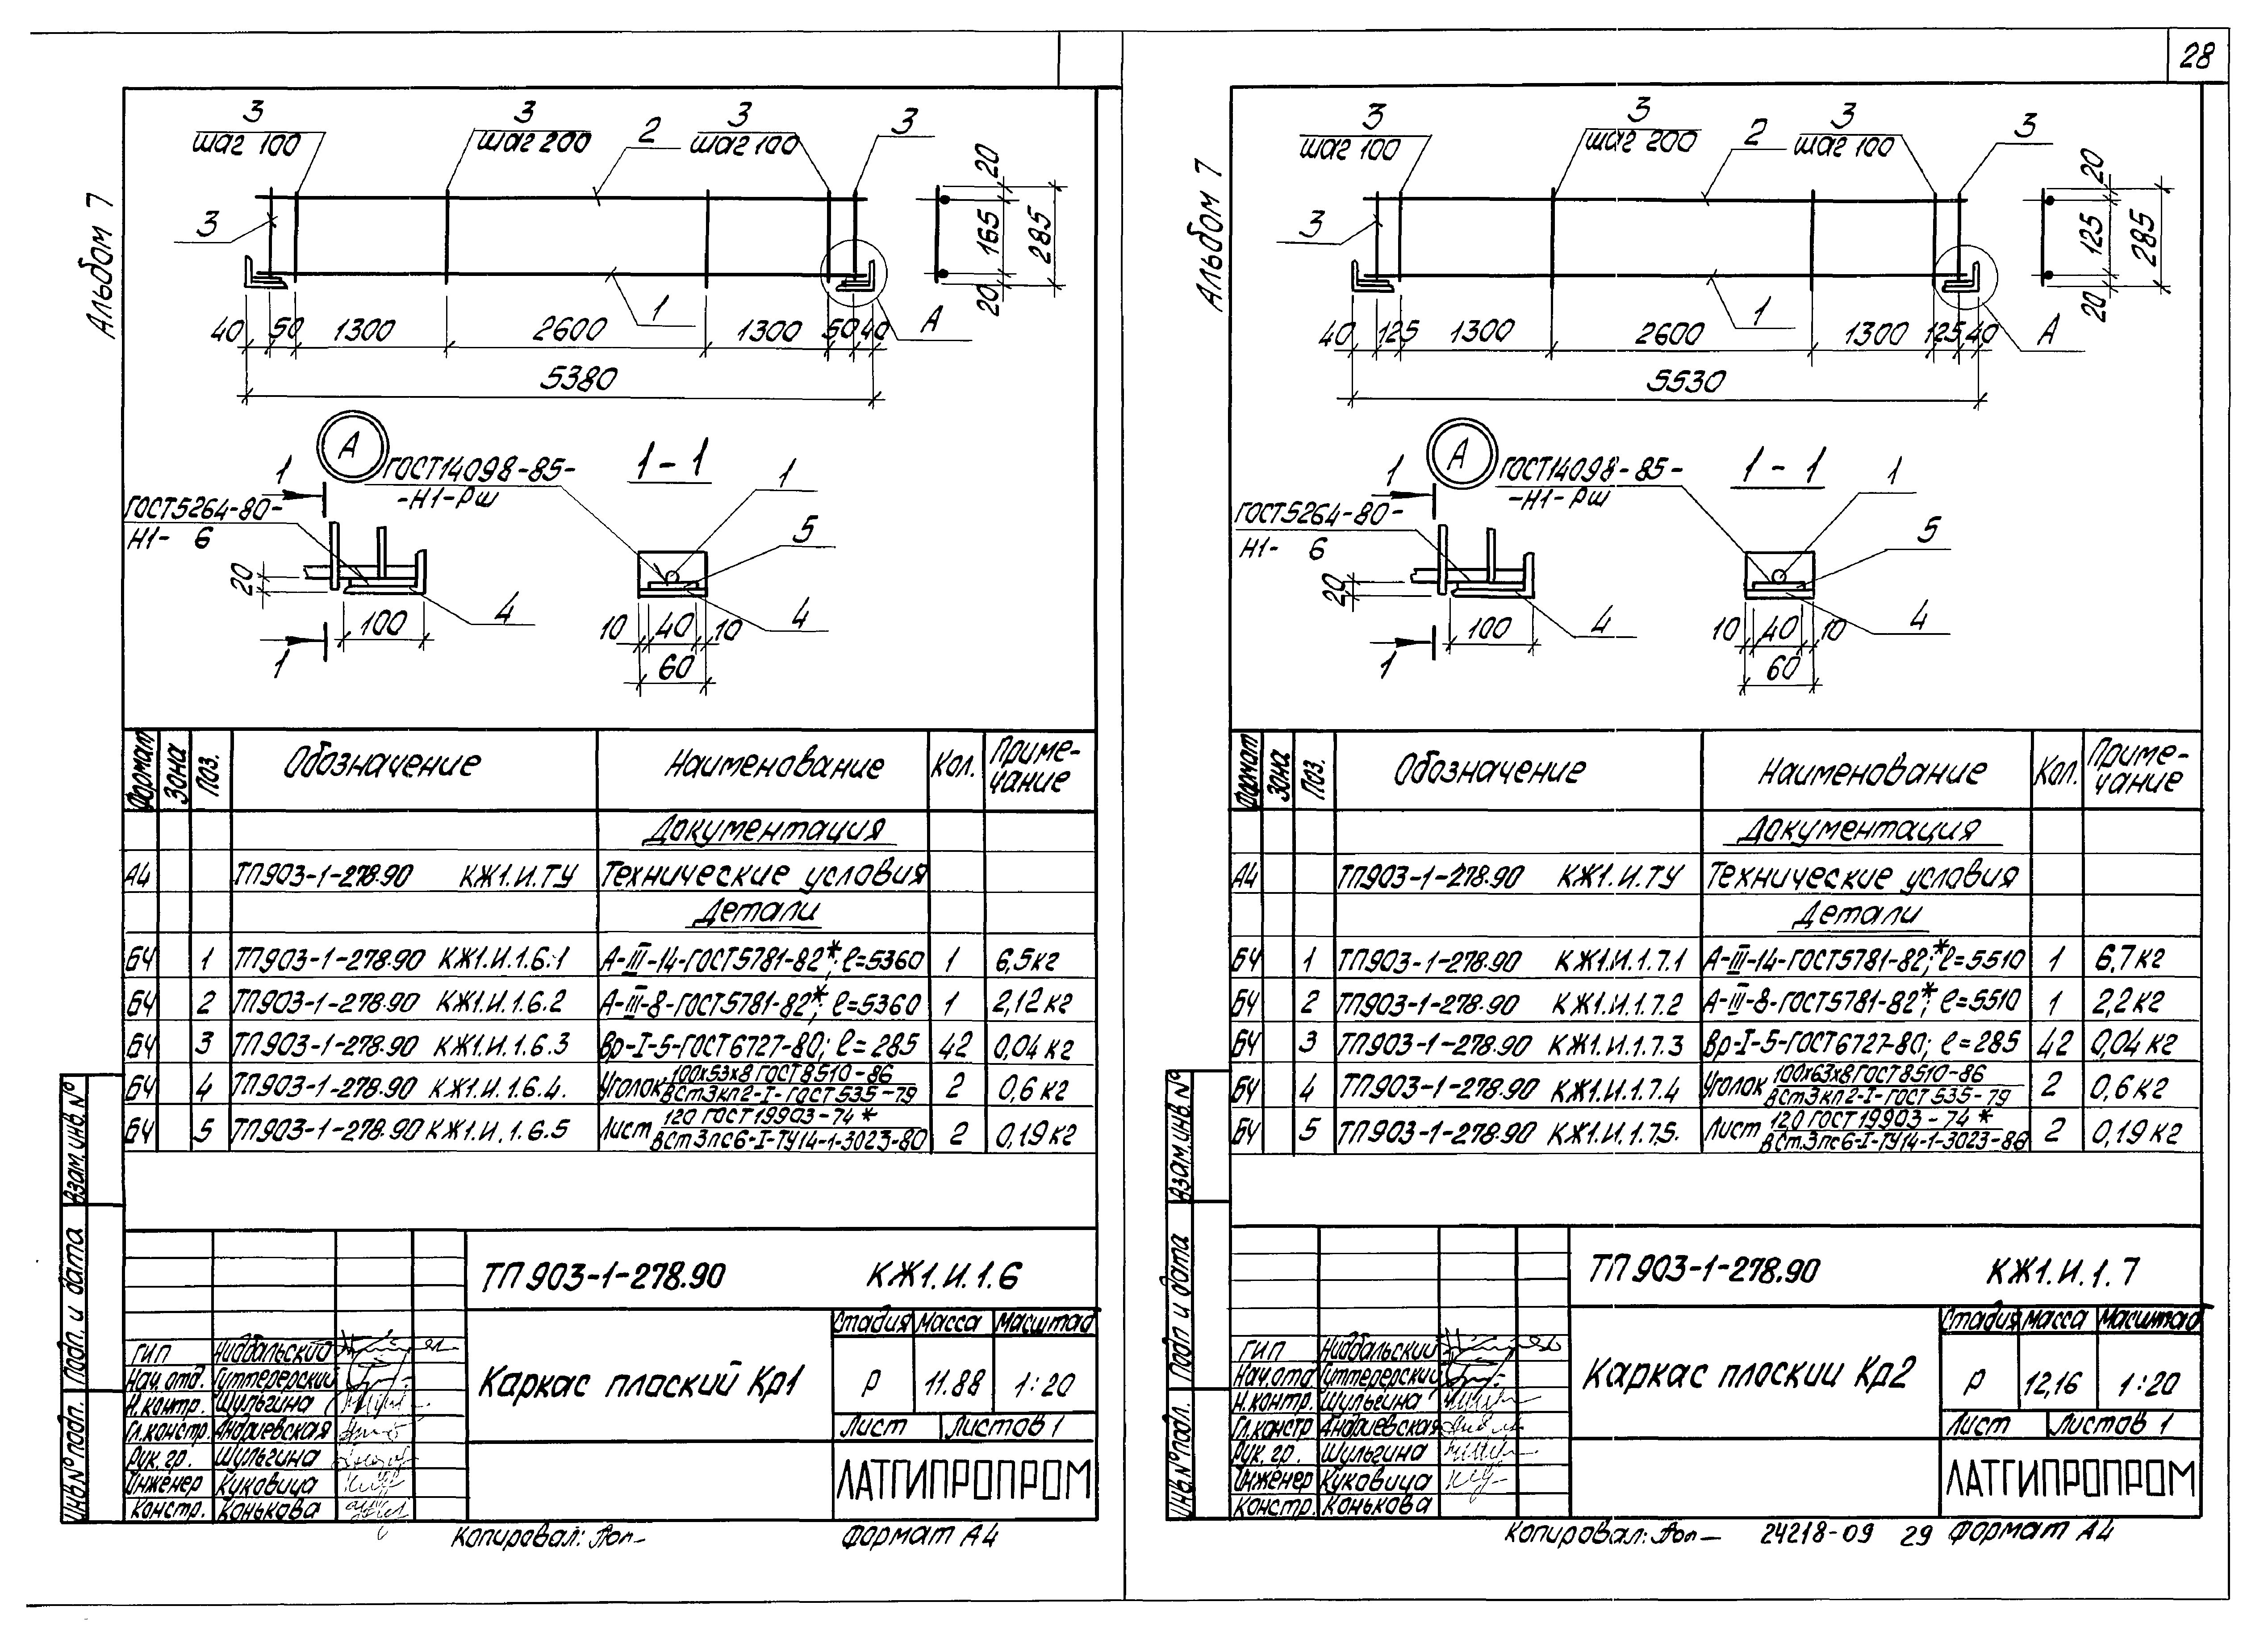 28
Альбом 7
3
шаг 100
3
шаг 200
2
3
шаг 100
3
3
20
165
285
20
1
А
40 50 1300 2600 1300 50 40
5380
А
ГОСТ14098-85-
-Н1-Рш
1-1
1
1
ГОСТ5264-80-
Н1- 6
5
20
4
4
100
10 40 10
1
60
Формат Зона Поз. Обозначение Наименование Кол. Приме-
чание
Документация
А4 ТП903-1-278.90 КЖ1.И.ТУ Технические условия
Детали
БЧ 1 ТП903-1-278.90 КЖ1.И.1.6.1 А-III-14-ГОСТ5781-82*; ℓ=5360 1 6,5кг
БЧ 2 ТП903-1-278.90 КЖ1.И.1.6.2 А-III-8-ГОСТ5781-82*; ℓ=5360 1 2,12кг
БЧ 3 ТП903-1-278.90 КЖ1.И.1.6.3 Вр-I-5-ГОСТ6727-80; ℓ=285 42 0,04кг
БЧ 4 ТП903-1-278.90 КЖ1.И.1.6.4. Уголок 100х53х8 ГОСТ8510-86
ВСт3кп2-I-ГОСТ535-79 2 0,6кг
БЧ 5 ТП903-1-278.90 КЖ1.И.1.6.5 Лист 120 ГОСТ19903-74*
ВСт3пс6-I-ТУ14-1-3023-80 2 0,19кг
Взам.инв.№
Подп. и дата
Инв.№подл.
ТП903-1-278.90 КЖ1.И.1.6
Каркас плоский Кр1
Стадия Масса Масштаб
Р 11.88 1:20
Лист Листов 1
ЛАТГИПРОПРОМ
ГИП Ниддальский
Нач.отд. Гиттерерский
Н.контр. Шульгина
Гл.констр. Андриевская
Рук.гр. Шульгина
Инженер Куковица
Констр. Конькова
Копировал: Формат А4
Альбом 7
3
шаг 100
3
шаг 200
2
3
шаг 100
3
3
20
125
285
20
1
А
40 125 1300 2600 1300 125 40
5530
А
ГОСТ14098-85-
-Н1-Рш
1-1
1
1
ГОСТ5264-80-
Н1- 6
5
20
4
4
100
10 40 10
1
60
Формат Зона Поз. Обозначение Наименование Кол. Приме-
чание
Документация
А4 ТП903-1-278.90 КЖ1.И.ТУ Технические условия
Детали
БЧ 1 ТП903-1-278.90 КЖ1.И.1.7.1 А-III-14-ГОСТ5781-82*; ℓ=5510 1 6,7кг
БЧ 2 ТП903-1-278.90 КЖ1.И.1.7.2 А-III-8-ГОСТ5781-82*; ℓ=5510 1 2,2кг
БЧ 3 ТП903-1-278.90 КЖ1.И.1.7.3 Вр-I-5-ГОСТ6727-80; ℓ=285 42 0,04кг
БЧ 4 ТП903-1-278.90 КЖ1.И.1.7.4 Уголок 100х63х8 ГОСТ8510-86
ВСт3кп2-I-ГОСТ535-79 2 0,6кг
БЧ 5 ТП903-1-278.90 КЖ1.И.1.7.5. Лист 120 ГОСТ19903-74*
ВСт3пс6-I-ТУ14-1-3023-86 2 0,19кг
Взам.инв.№
Подп и дата
Инв.№подл.
ТП903-1-278.90 КЖ1.И.1.7
Каркас плоский Кр2
Стадия Масса Масштаб
Р 12,16 1:20
Лист Листов 1
ЛАТГИПРОПРОМ
ГИП Ниддальский
Нач.отд Гиттерерский
Н.контр. Шульгина
Гл.констр Андриевская
Рук.гр. Шульгина
Инженер Куковица
Констр. Конькова
Копировал: 24218-09 29 Формат А4